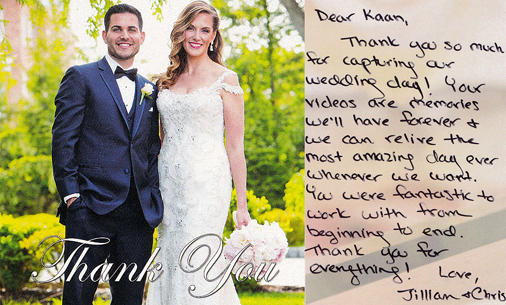 Thank You
Dear Kaan,
Thank you so much
for capturing our
wedding day! Your
videos are memories
we'll have forever &
we can relive the
most amazing day ever
whenever we want.
You were fantastic to
work with from
beginning to end.
Thank you for
everything!
Love,
Jillian & Chris